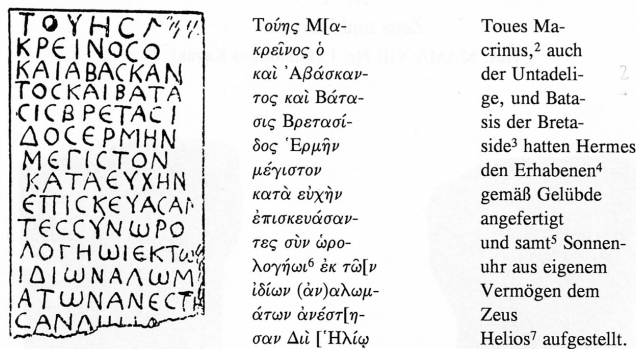 ΤΟΥΗCΛ
ΚΡΕΙΝΟCΟ
ΚΑΙΑΒΑCΚΑΝ
ΤΟCΚΑΙΒΑΤΑ
CΙCΒΡΕΤΑCΙ
ΔΟCΕΡΜΗΝ
ΜΕΓΙCΤΟΝ
ΚΑΤΑΕΥΧΗΝ
ΕΠΙCΚΕΥΑCΑΝ
ΤΕCCΥΝωΡΟ
ΛΟΓΗωΙΕΚΤω
ΙΔΙωΝΑΛωΜ
ΑΤωΝΑΝΕCΤΗ
CΑΝΔΙΙ
Τούης Μ[α-
κρεῖνος ὁ
καὶ Ἀβάσκαν-
τος καὶ Βάτα-
σις Βρετασί-
δος Ἑρμῆν
μέγιστον
κατὰ εὐχὴν
ἐπισκευάσαν-
τες σὺν ὡρο-
λογήωι⁶ ἐκ τῶ[ν
ἰδίων (ἀν)αλωμ-
άτων ἀνέστ[η-
σαν Διὶ [Ἡλίῳ
Toues Ma-
crinus,² auch
der Untadeli-
ge, und Bata-
sis der Breta-
side³ hatten Hermes
den Erhabenen⁴
gemäß Gelübde
angefertigt
und samt⁵ Sonnen-
uhr aus eigenem
Vermögen dem
Zeus
Helios⁷ aufgestellt.